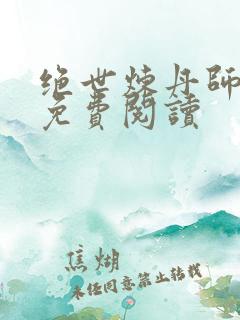 绝世炼丹师
免費閱讀
焦煳
未经同意禁止转载